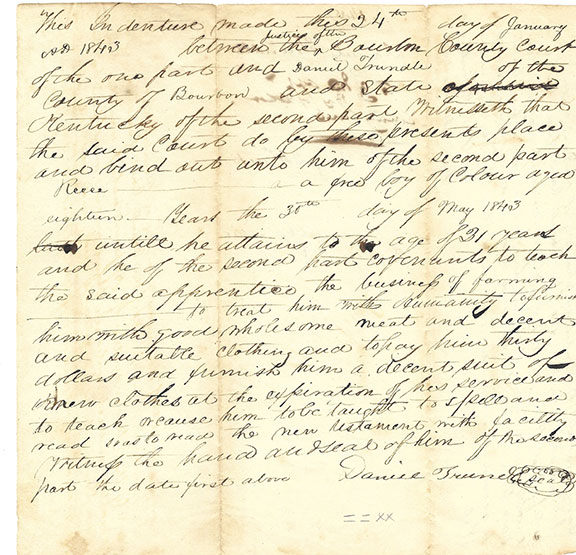 This Indenture made this 24th day of January
AD 1843 between the Justices of the Bourbon County Court
of the one part and Daniel Trundle of the
County of Bourbon and State
Kentucky of the second part Witnesseth that
the said Court do by these presents place
and bind out unto him of the second part
Reese a free boy of Colour aged
eighteen Years the 30th day of May 1843
untill he attains to the age of 21 years
and he of the second part covenants to teach
the said apprentice the business of farming
to treat him with humanity to furnish
him with good wholesome meat and decent
and suitable clothing and to pay him thirty
dollars and furnish him a decent suit of
new clothes at the expiration of his service and
to teach or cause him to be taught to spell and
read so as to read the new testament with facility
Witness the hand and seal of him of the second
part the date first above
Daniel Trundle
= = xx